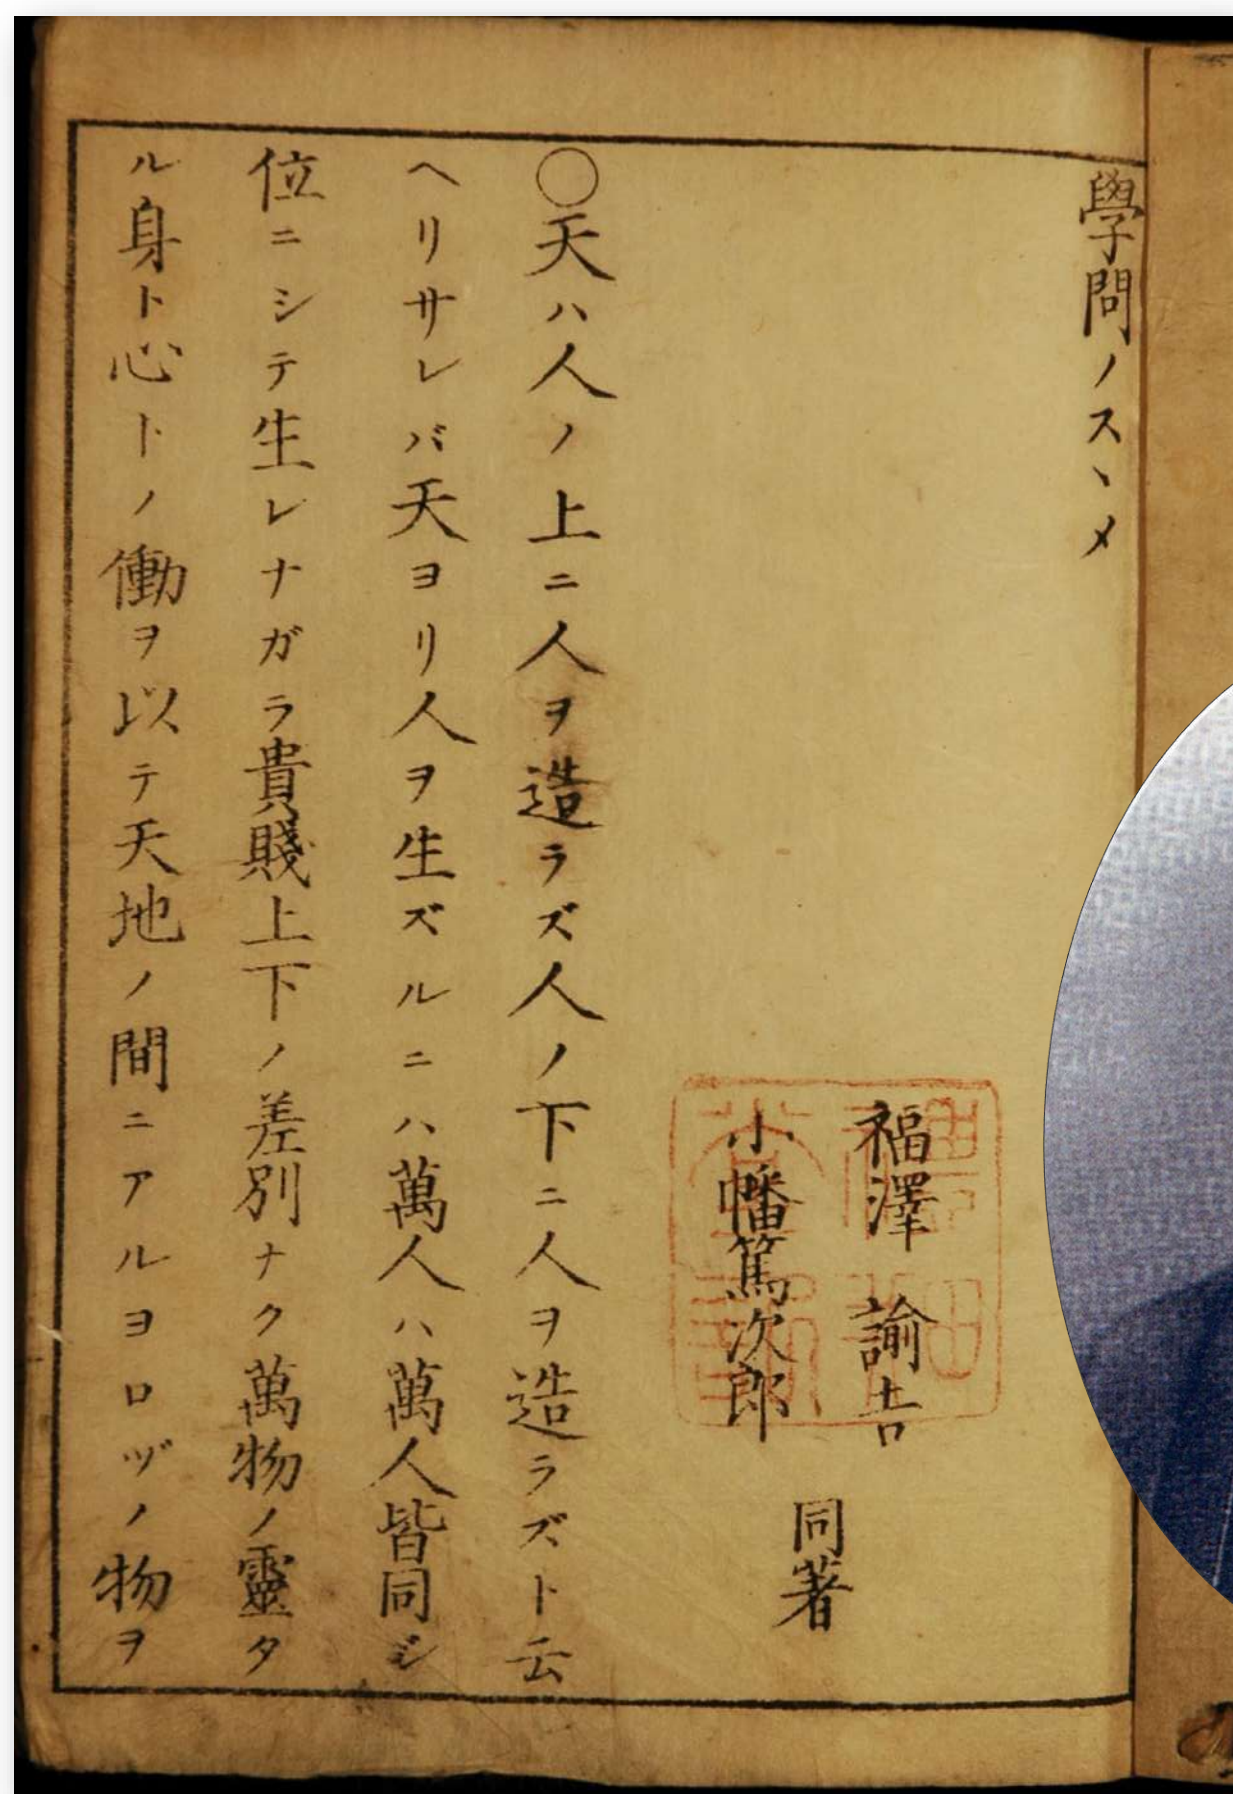 學問ノスヽメ
福澤諭吉
小幡篤次郎
同著
○天ハ人ノ上ニ人ヲ造ラズ人ノ下ニ人ヲ造ラズト云
ヘリサレバ天ヨリ人ヲ生ズルニハ萬人ハ萬人皆同ジ
位ニシテ生レナガラ貴賤上下ノ差別ナク萬物ノ靈タ
ル身ト心トノ働ヲ以テ天地ノ間ニアルヨロヅノ物ヲ